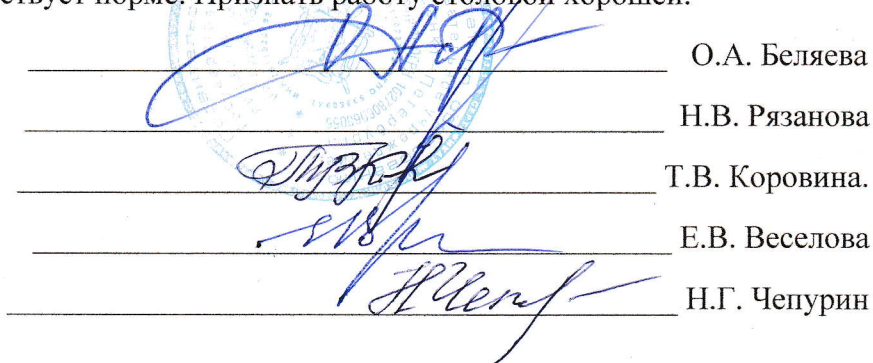 ствует норме. Признать работу столовой хорошей.
О.А. Беляева
Н.В. Рязанова
Т.В. Коровина.
Е.В. Веселова
Н.Г. Чепурин